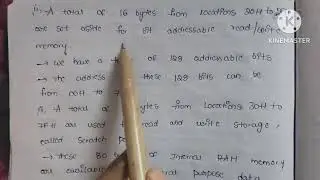 A total of 16 bytes from locations 20H to
are set aside for bit addressable read/
memory. KINEMASTER
→ We have a of 128 addressable bits
→ the address these 128 bits can be
from 00H to 7
A total of bytes from locations 30H to
7FH are used read and write storage,
called Scratch
→ these 80 of Internal RAM memory
are available purpose data